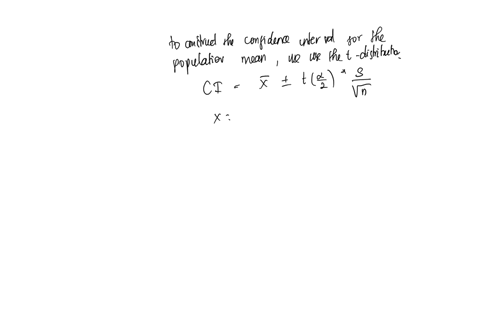 to construct the confidence interval for the
population mean, we use the t-distribution.
CI = x̄ ± t(α/2) * S/√n
x =